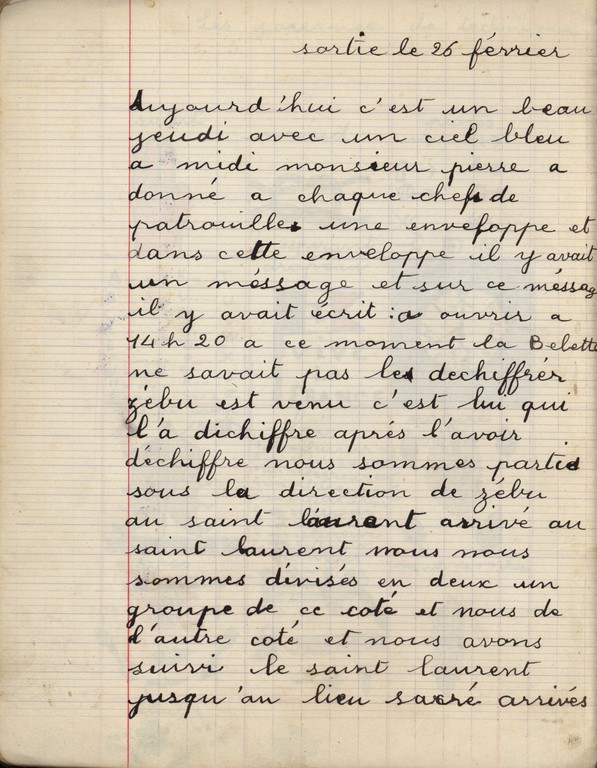 sortie le 26 février
Aujourd'hui c'est un beau
jeudi avec un ciel bleu
a midi monsieur pierre a
donné a chaque chefs de
patrouilles une enveloppe et
dans cette enveloppe il y avait
un méssage et sur ce méssag
il y avait écrit : a ouvrir a
14h 20 a ce moment la Belette
ne savait pas le dechiffrér
zébu est venu c'est lui qui
l'a dichiffre aprés l'avoir
déchiffre nous sommes partis
sous la direction de zébu
au saint laurent arrivé au
saint laurent nous nous
sommes divisés en deux un
groupe de ce coté et nous de
l'autre coté et nous avons
suivi le saint laurent
jusqu'au lieu sacré arrivés